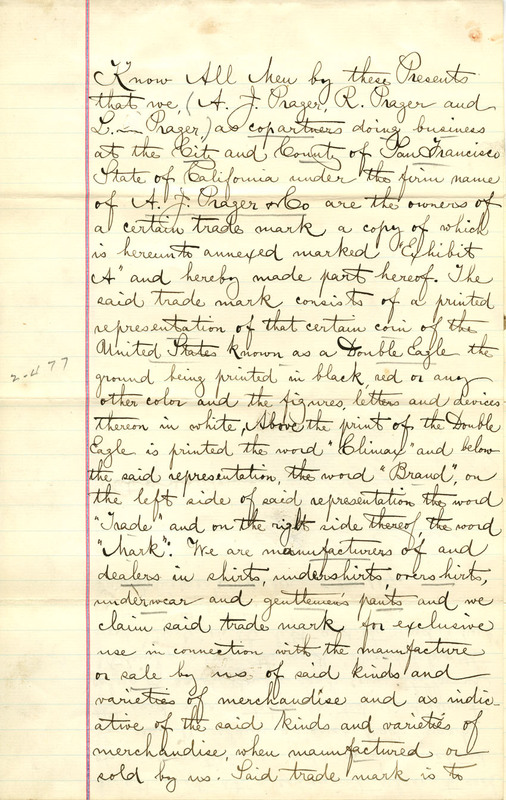 Know All Men by these Presents
that we, (A. J. Prager, R. Prager and
L. Prager,) as copartners doing business
at the City and County of San Francisco
State of California under the firm name
of A. J. Prager & Co are the owners of
a certain trade mark a copy of which
is hereunto annexed marked "Exhibit
A" and hereby made part hereof. The
said trade mark consists of a printed
representation of that certain coin of the
United States known as a Double Eagle the
ground being printed in black, red or any
other color and the figures, letters and devices
thereon in white, Above the print of the Double
Eagle is printed the word "Climax" and below
the said representation, the word "Brand", on
the left side of said representation the word
"Trade" and on the right side thereof, the word
"Mark". We are manufacturers of and
dealers in shirts, undershirts, overshirts,
underwear and gentlemen's pants and we
claim said trade mark for exclusive
use in connection with the manufacture
or sale by us of said kinds and
varieties of merchandise and as indic-
ative of the said kinds and varieties of
merchandise, when manufactured or
sold by us. Said trade mark is to
2-477